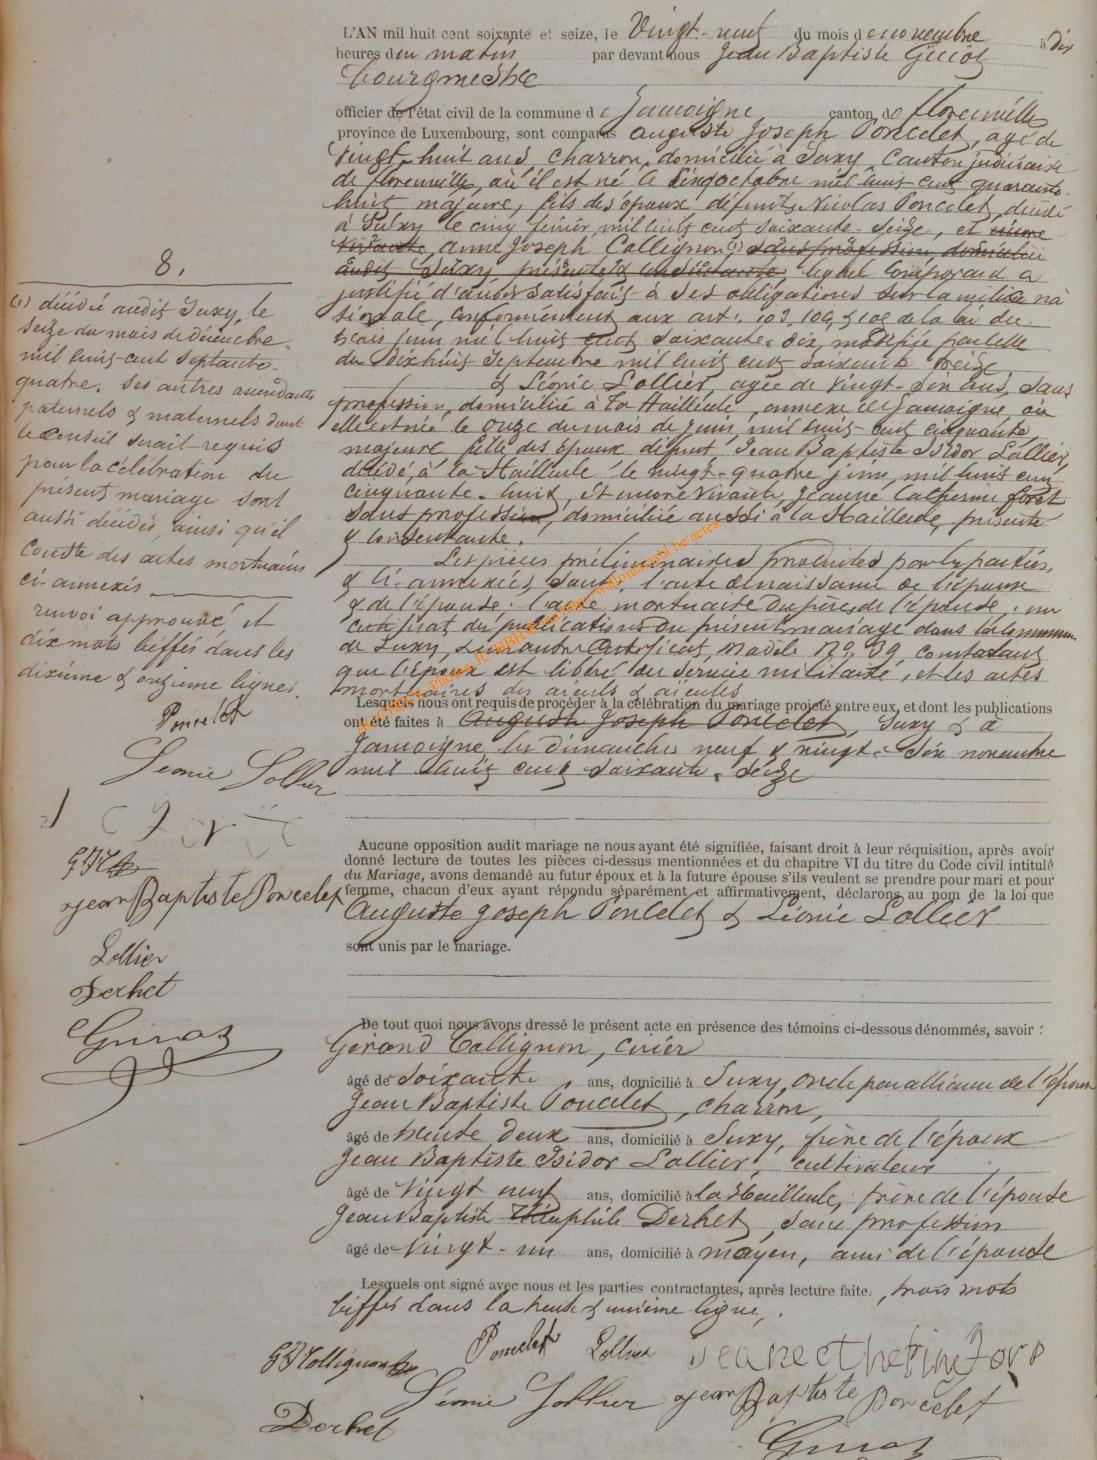 L'AN mil huit cent soixante et seize, le Vingt-neuf du mois de novembre à dix
heures du matin par devant nous Jean Baptiste Guiot
bourgmestre
officier de l'état civil de la commune de Jamoigne canton de florenville
province de Luxembourg, sont comparus auguste Joseph Poncelet, agé de
Vingt-huit ans, charron, domicilié à Suxy, Canton judiciaire
de florenville, où il est né le octobre mil huit cent quarante-
huit, majeur, fils des époux défunts Nicolas Poncelet, décédé
à Suxy le cinq février mil huit cent soixante-seize, et
anne Joseph Collignon (1) sans profession, domiciliée
audit Suxy, présente & consentante, lequel comparant a
justifié d'avoir satisfait à ses obligations sur la milice na
tionale, conformément aux art. 103, 104, & 108 de la loi du
trois juin mil huit cent soixante-dix, modifiée par celle
du dix huit septembre mil huit cent soixante treize
& Léonie Lollier, agée de vingt-six ans, sans
profession, domiciliée à la Hailleule, annexe de Jamoigne, où
elle est née le onze du mois de juin, mil huit cent cinquante
majeure fille des époux défunt Jean Baptiste Isidor Lollier,
décédé, à la Hailleule le vingt-quatre mil huit cent
cinquante-huit, et encore vivante, Jeanne Catherine foret
sans profession, domiciliée aussi à la Hailleule, présente
& consentante.
Les pièces préliminaires produites par les parties,
& ci-annexées, sont: l'acte de naissance de l'époux
& de l'épouse; l'acte mortuaire du père de l'épouse; un
certificat des publications du présent mariage dans la commune
de Suxy, un autre certificat, modèle N° 39 constatant
que l'époux est libéré du service militaire, et les actes
mortuaires des aïeuls & aïeules
Lesquels nous ont requis de procéder à la célébration du mariage projeté entre eux, et dont les publications
ont été faites à Auguste Joseph Poncelet, Suxy & à
Jamoigne les dimanches neuf & vingt-six novembre
mil huit cent soixante-seize
Aucune opposition audit mariage ne nous ayant été signifiée, faisant droit à leur réquisition, après avoir
donné lecture de toutes les pièces ci-dessus mentionnées et du chapitre VI du titre du Code civil intitulé
du Mariage, avons demandé au futur époux et à la future épouse s'ils veulent se prendre pour mari et pour
femme, chacun d'eux ayant répondu séparément et affirmativement, déclarons au nom de la loi que
Auguste Joseph Poncelet & Léonie Lollier
sont unis par le mariage.
De tout quoi nous avons dressé le présent acte en présence des témoins ci-dessous dénommés, savoir :
Gérard Collignon, cirier
âgé de soixante ans, domicilié à Suxy, oncle par alliance de l'époux
Jean Baptiste Poncelet, charron,
âgé de trente deux ans, domicilié à Suxy, frère de l'époux
Jean Baptiste Isidor Lollier, cultivateur
âgé de Vingt neuf ans, domicilié à la Hailleule, frère de l'épouse
Jean Baptiste Théophile Derhet, sans profession
âgé de Vingt-un ans, domicilié à moyen, ami de l'épouse
Lesquels ont signé avec nous et les parties contractantes, après lecture faite. , trois mots
biffés dans la trente & unième ligne,.
GJ Collignon
Poncelet
Lollier
Jeanecatherine Fore
Léonie Lollier
Jean Baptiste Poncelet
Derhet
8.
(1) décédée audit Suxy, le
seize du mois de décembre
mil huit cent septante-
quatre. Ses autres ascendants
paternels & maternels dont
le conseil serait requis
pour la célébration du
présent mariage sont
aussi décédés, ainsi qu'il
conste des actes mortuaires
ci-annexés
renvoi approuvé, et
dix mots biffés dans les
dixième & onzième lignes.
Poncelet
Léonie Lollier
Jean Baptiste Poncelet
Lollier
Derhet